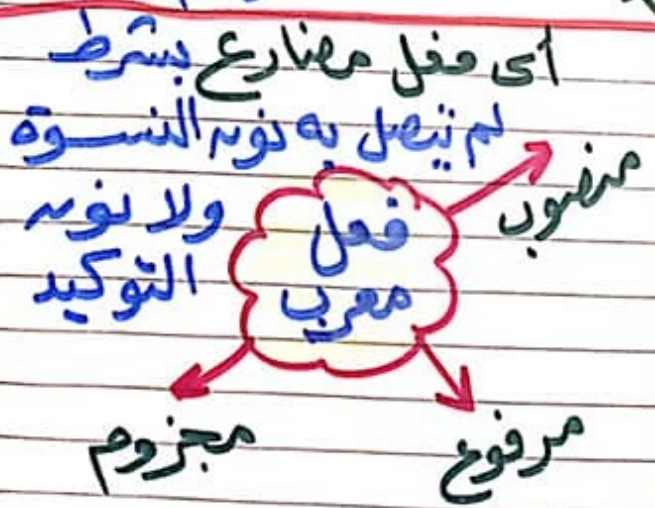 أى فعل مضارع بشرط
لم يتصل به نون النسوة
ولا نون
التوكيد
فعل
معرب
منصوب
مرفوع
مجزوم